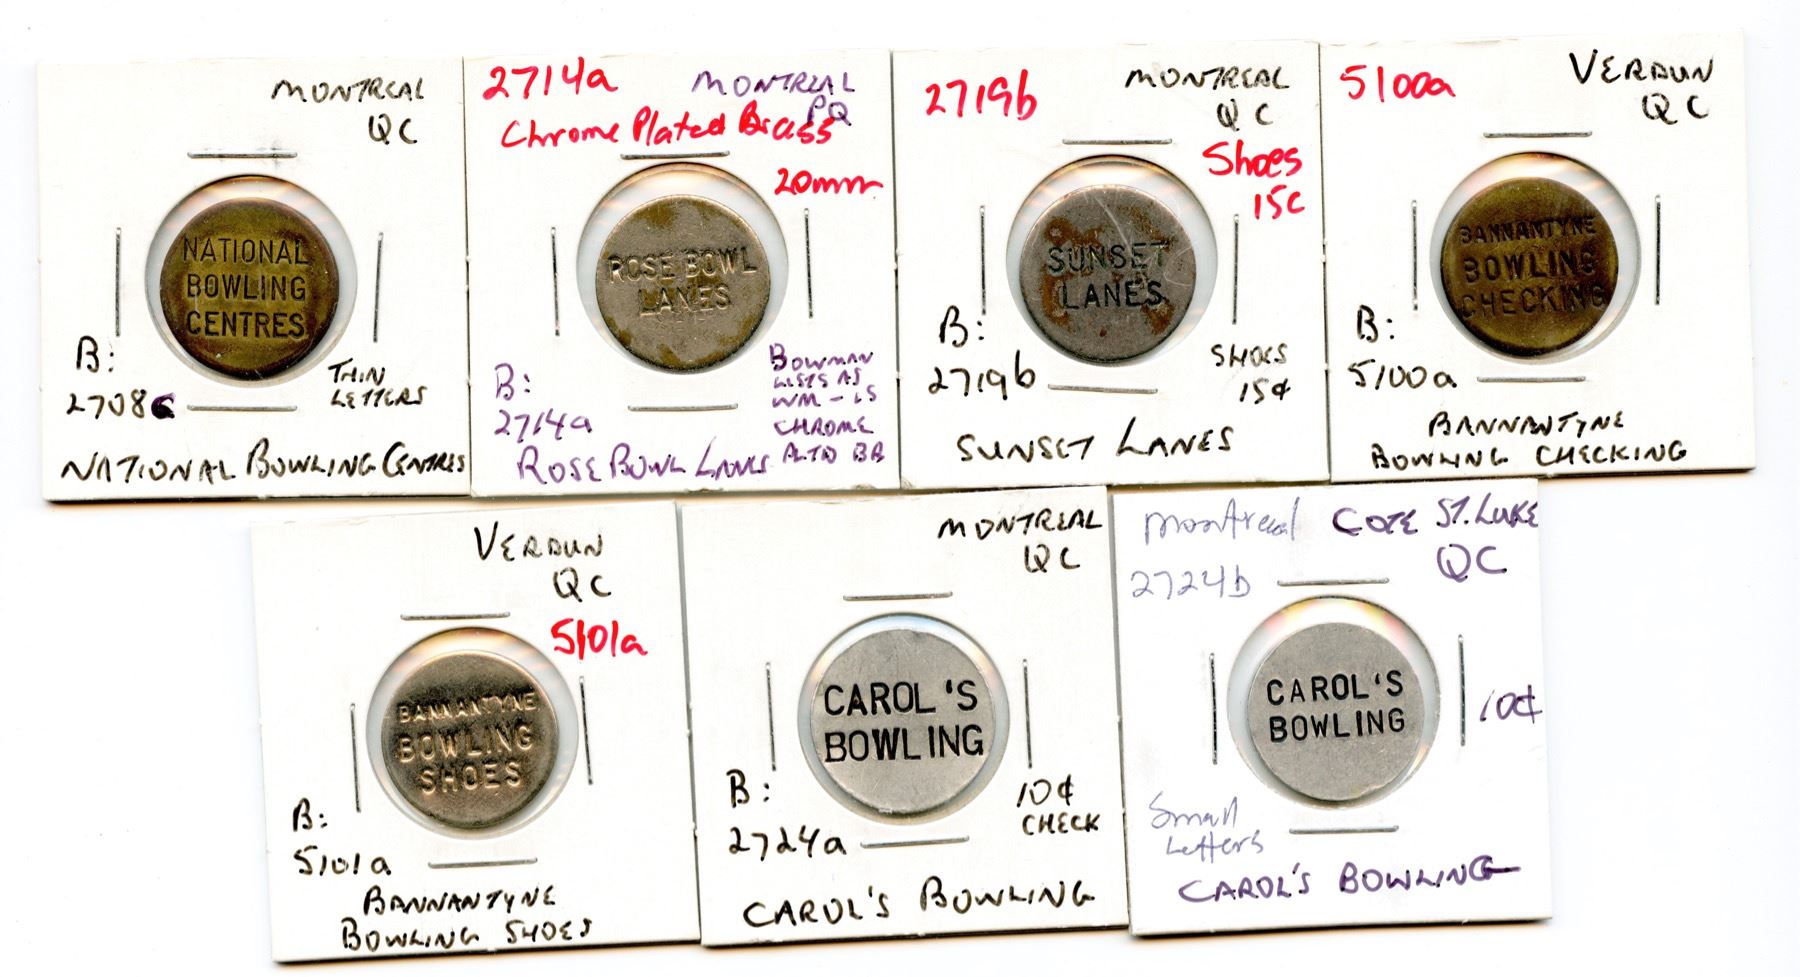 MONTREAL
QC
NATIONAL
BOWLING
CENTRES
B:
2708c
THIN
LETTERS
NATIONAL BOWLING CENTRES
2714a
MONTREAL
PQ
Chrome Plated Brass
20mm
ROSE BOWL
LANES
B:
2714a
BOWMAN
LISTS AS
WM - IS
CHROME
PLTD BR
ROSE BOWL LANES
2719b
MONTREAL
QC
Shoes
15c
SUNSET
LANES
B:
2719b
SHOES
15¢
SUNSET LANES
5100a
VERDUN
QC
BANNANTYNE
BOWLING
CHECKING
B:
5100a
BANNANTYNE
BOWLING CHECKING
VERDUN
QC
5101a
BANNANTYNE
BOWLING
SHOES
B:
5101a
BANNANTYNE
BOWLING SHOES
MONTREAL
QC
CAROL'S
BOWLING
B:
2724a
10¢
CHECK
CAROL'S BOWLING
Montreal
COTE ST. LUKE
QC
2724b
CAROL'S
BOWLING
10¢
Small
Letters
CAROL'S BOWLING